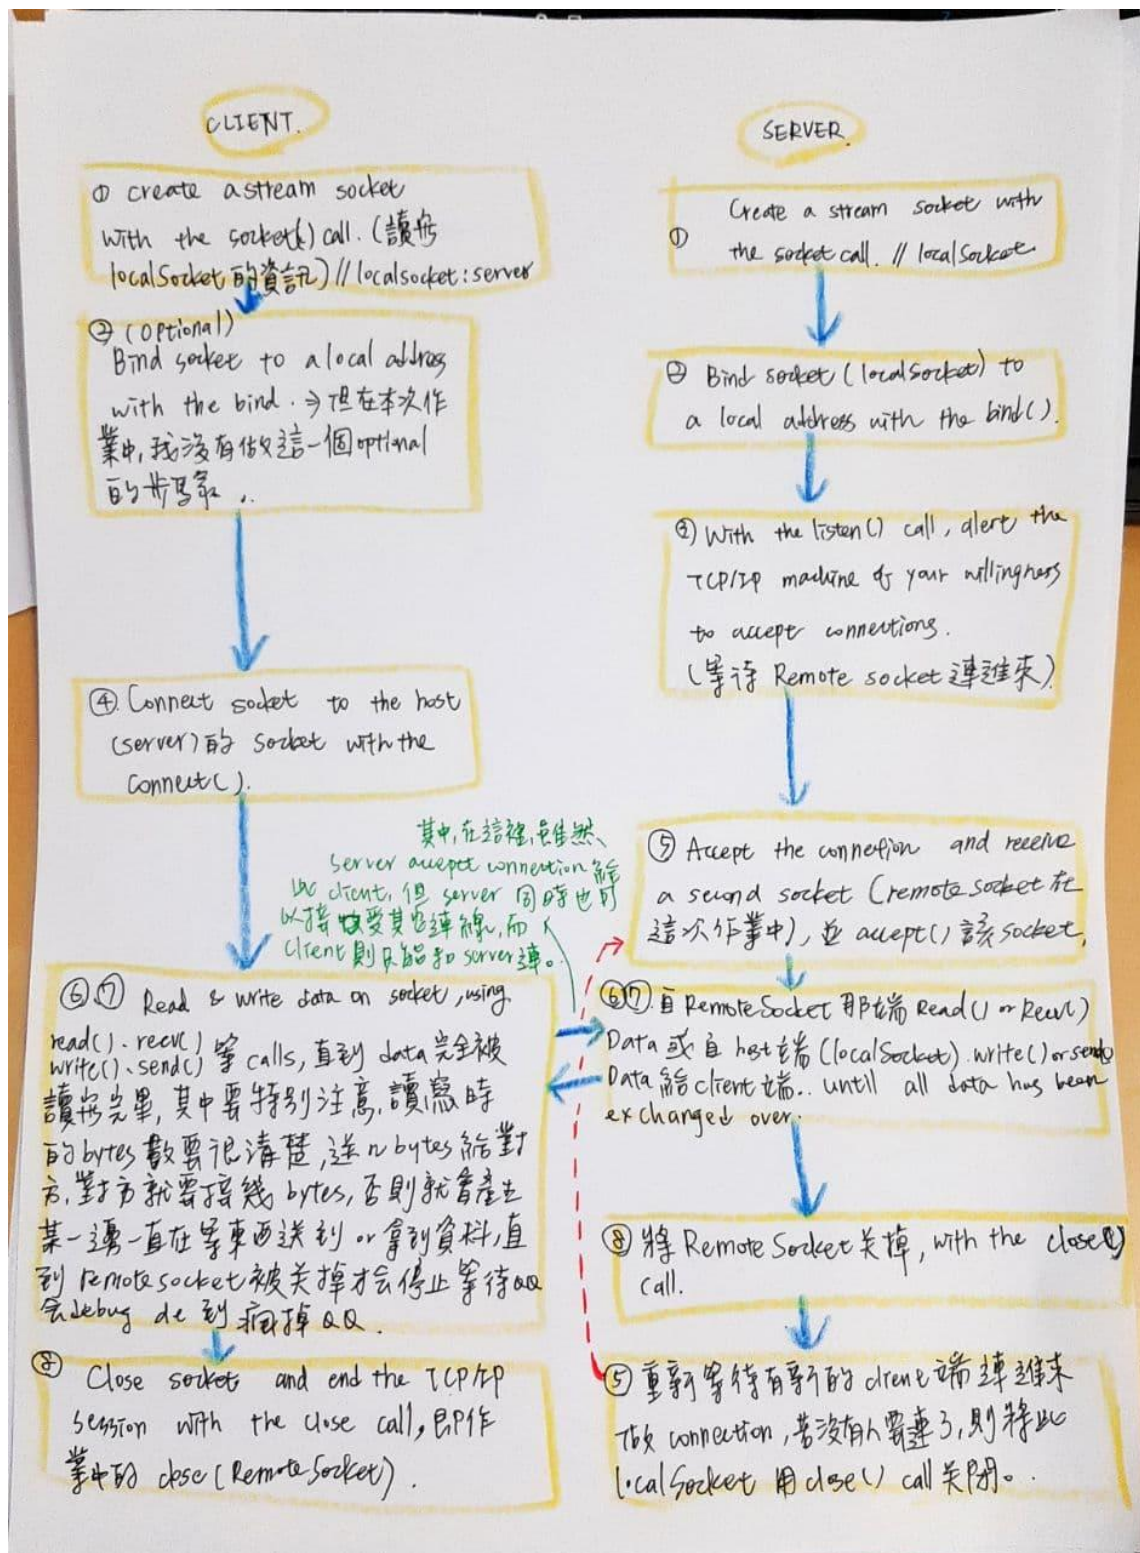 CLIENT.
① create a stream socket
with the socket() call. (讀寫
localSocket的資訊) // localsocket: server
② (optional)
Bind socket to a local address
with the bind. → 但在本次作
業中, 我沒有做這一個optional
的步驟..
④. Connect socket to the host
(server)的 socket with the
connect().
其中, 在這裡, 雖然
server accept connection 給
此 client, 但 server 同時也可
以接受其他連線, 而
client則只能和server連。
⑥.⑦ Read & write data on socket, using
read().recv()
write().send() 等 calls, 直到 data完全被
讀寫完畢, 其中要特別注意, 讀寫時
的bytes 數要很清楚, 送n bytes給對
方, 對方就要接幾 bytes, 否則就會產生
某一邊一直在等東西送到 or 拿到資料, 直
到 remotesocket被关掉才会停止等待QQ
会debug de 到 瘋掉QQ.
⑧ Close socket and end the TCP/IP
session with the close call, 即作
業中的 close (RemoteSocket).
SERVER.
① Create a stream socket with
the socket call. // localSocket
② Bind socket (localSocket) to
a local address with the bind().
③ With the listen() call, alert the
TCP/IP machine of your willingness
to accept connections.
(等待 Remote socket 連進來)
⑤ Accept the connection and receive
a second socket (remote socket 在
這次作業中), 並 accept() 該socket.
⑥⑦. 自 RemoteSocket 那端 Read() or Recv()
Data 或自 host端 (localSocket).write() or send
Data 給client 端.. until all data has been
exchanged over.
⑧ 將 Remote Socket 关掉, with the close()
call.
⑤ 重新等待有新的 client 端 連進來
做 connection, 若沒有人要連了, 則將此
localSocket 用 close() call 关閉。